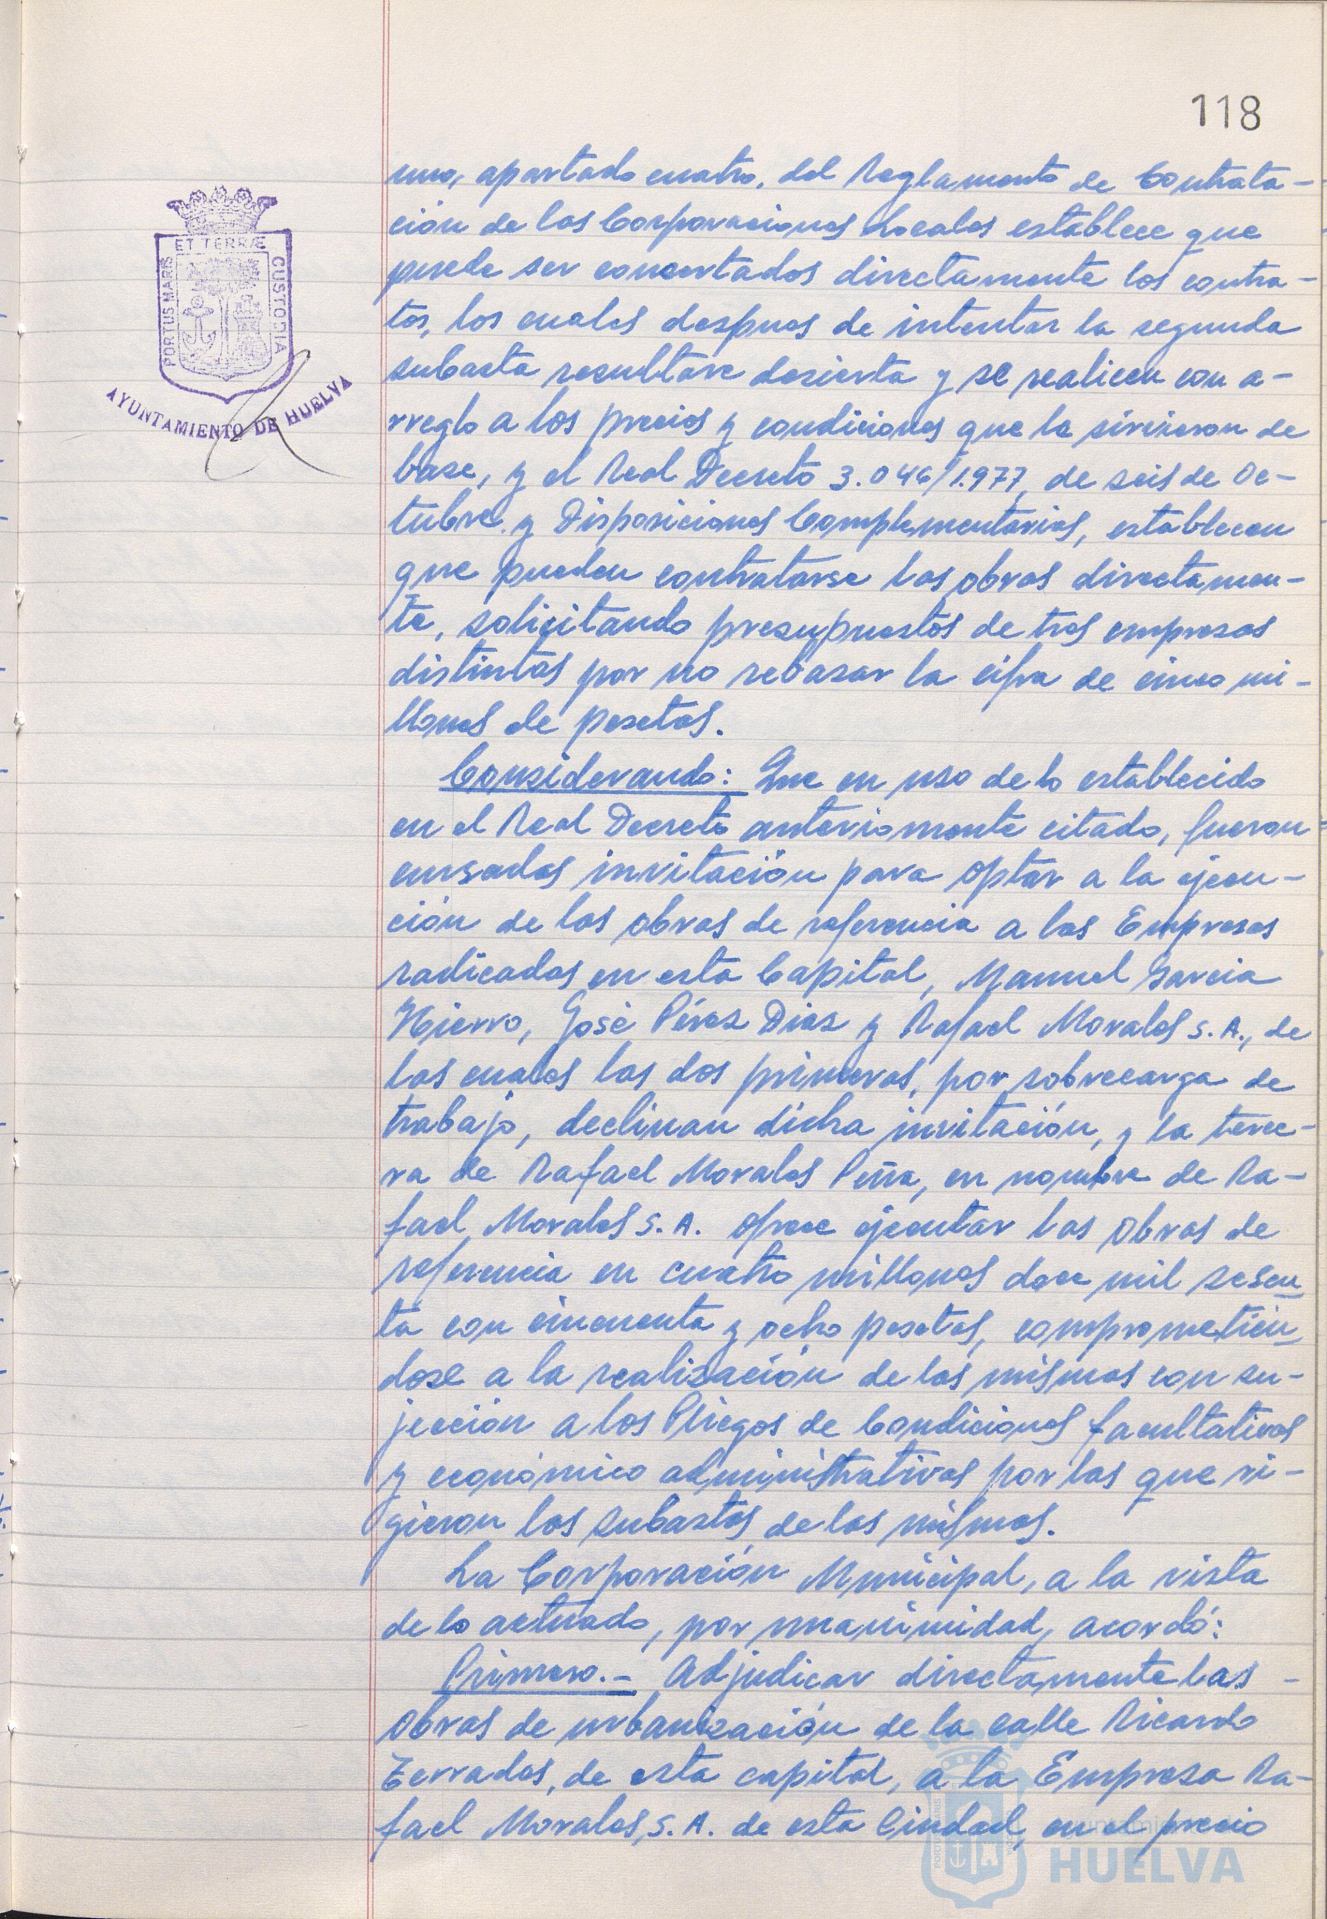 118
uno, apartado cuatro, del Reglamento de Contrata-
ción de las Corporaciones Locales establece que
puede ser concertados directamente los contra-
tos, los cuales despues de intentar la segunda
subasta resultare desierta y se realicen con a-
rreglo a los precios y condiciones que le sirvieron de
base, y el Real Decreto 3.046/1.977, de seis de Oc-
tubre y Disposiciones Complementarias, establecen
que pueden contratarse las obras directamen-
te, solicitando presupuestos de tres empresas
distintas por no rebasar la cifra de cinco mi-
llones de pesetas.
Considerando: Que en uso de lo establecido
en el Real Decreto anteriomente citado, fueron
cursadas invitación para optar a la ejecu-
ción de las obras de referencia a las Empresas
radicadas en esta Capital, Manuel Garcia
Hierro, José Pérez Diaz y Rafael Morales S.A., de
las cuales las dos primeras, por sobrecarga de
trabajo, declinan dicha invitación, y la terce-
ra de Rafael Morales Peña, en nombre de Ra-
fael Morales S.A. ofrece ejecutar las obras de
referencia en cuatro millones doce mil sesen
ta con cincuenta y ocho pesetas, comprometien
dose a la realización de las mismas con su-
jección a los Pliegos de Condiciones facultativas
y económico administrativas por las que ri-
gieron las subastas de las mismas.
La Corporación Municipal, a la vista
de lo actuado, por unanimidad, acordó:
Primero.- Adjudicar directamente las -
obras de urbanización de la calle Ricardo
Terrades, de esta capital, a la Empresa Ra-
fael Morales, S.A. de esta Ciudad, en el precio
PORTUS MARIS ET TERRÆ CUSTODIA
AYUNTAMIENTO DE HUELVA
HUELVA